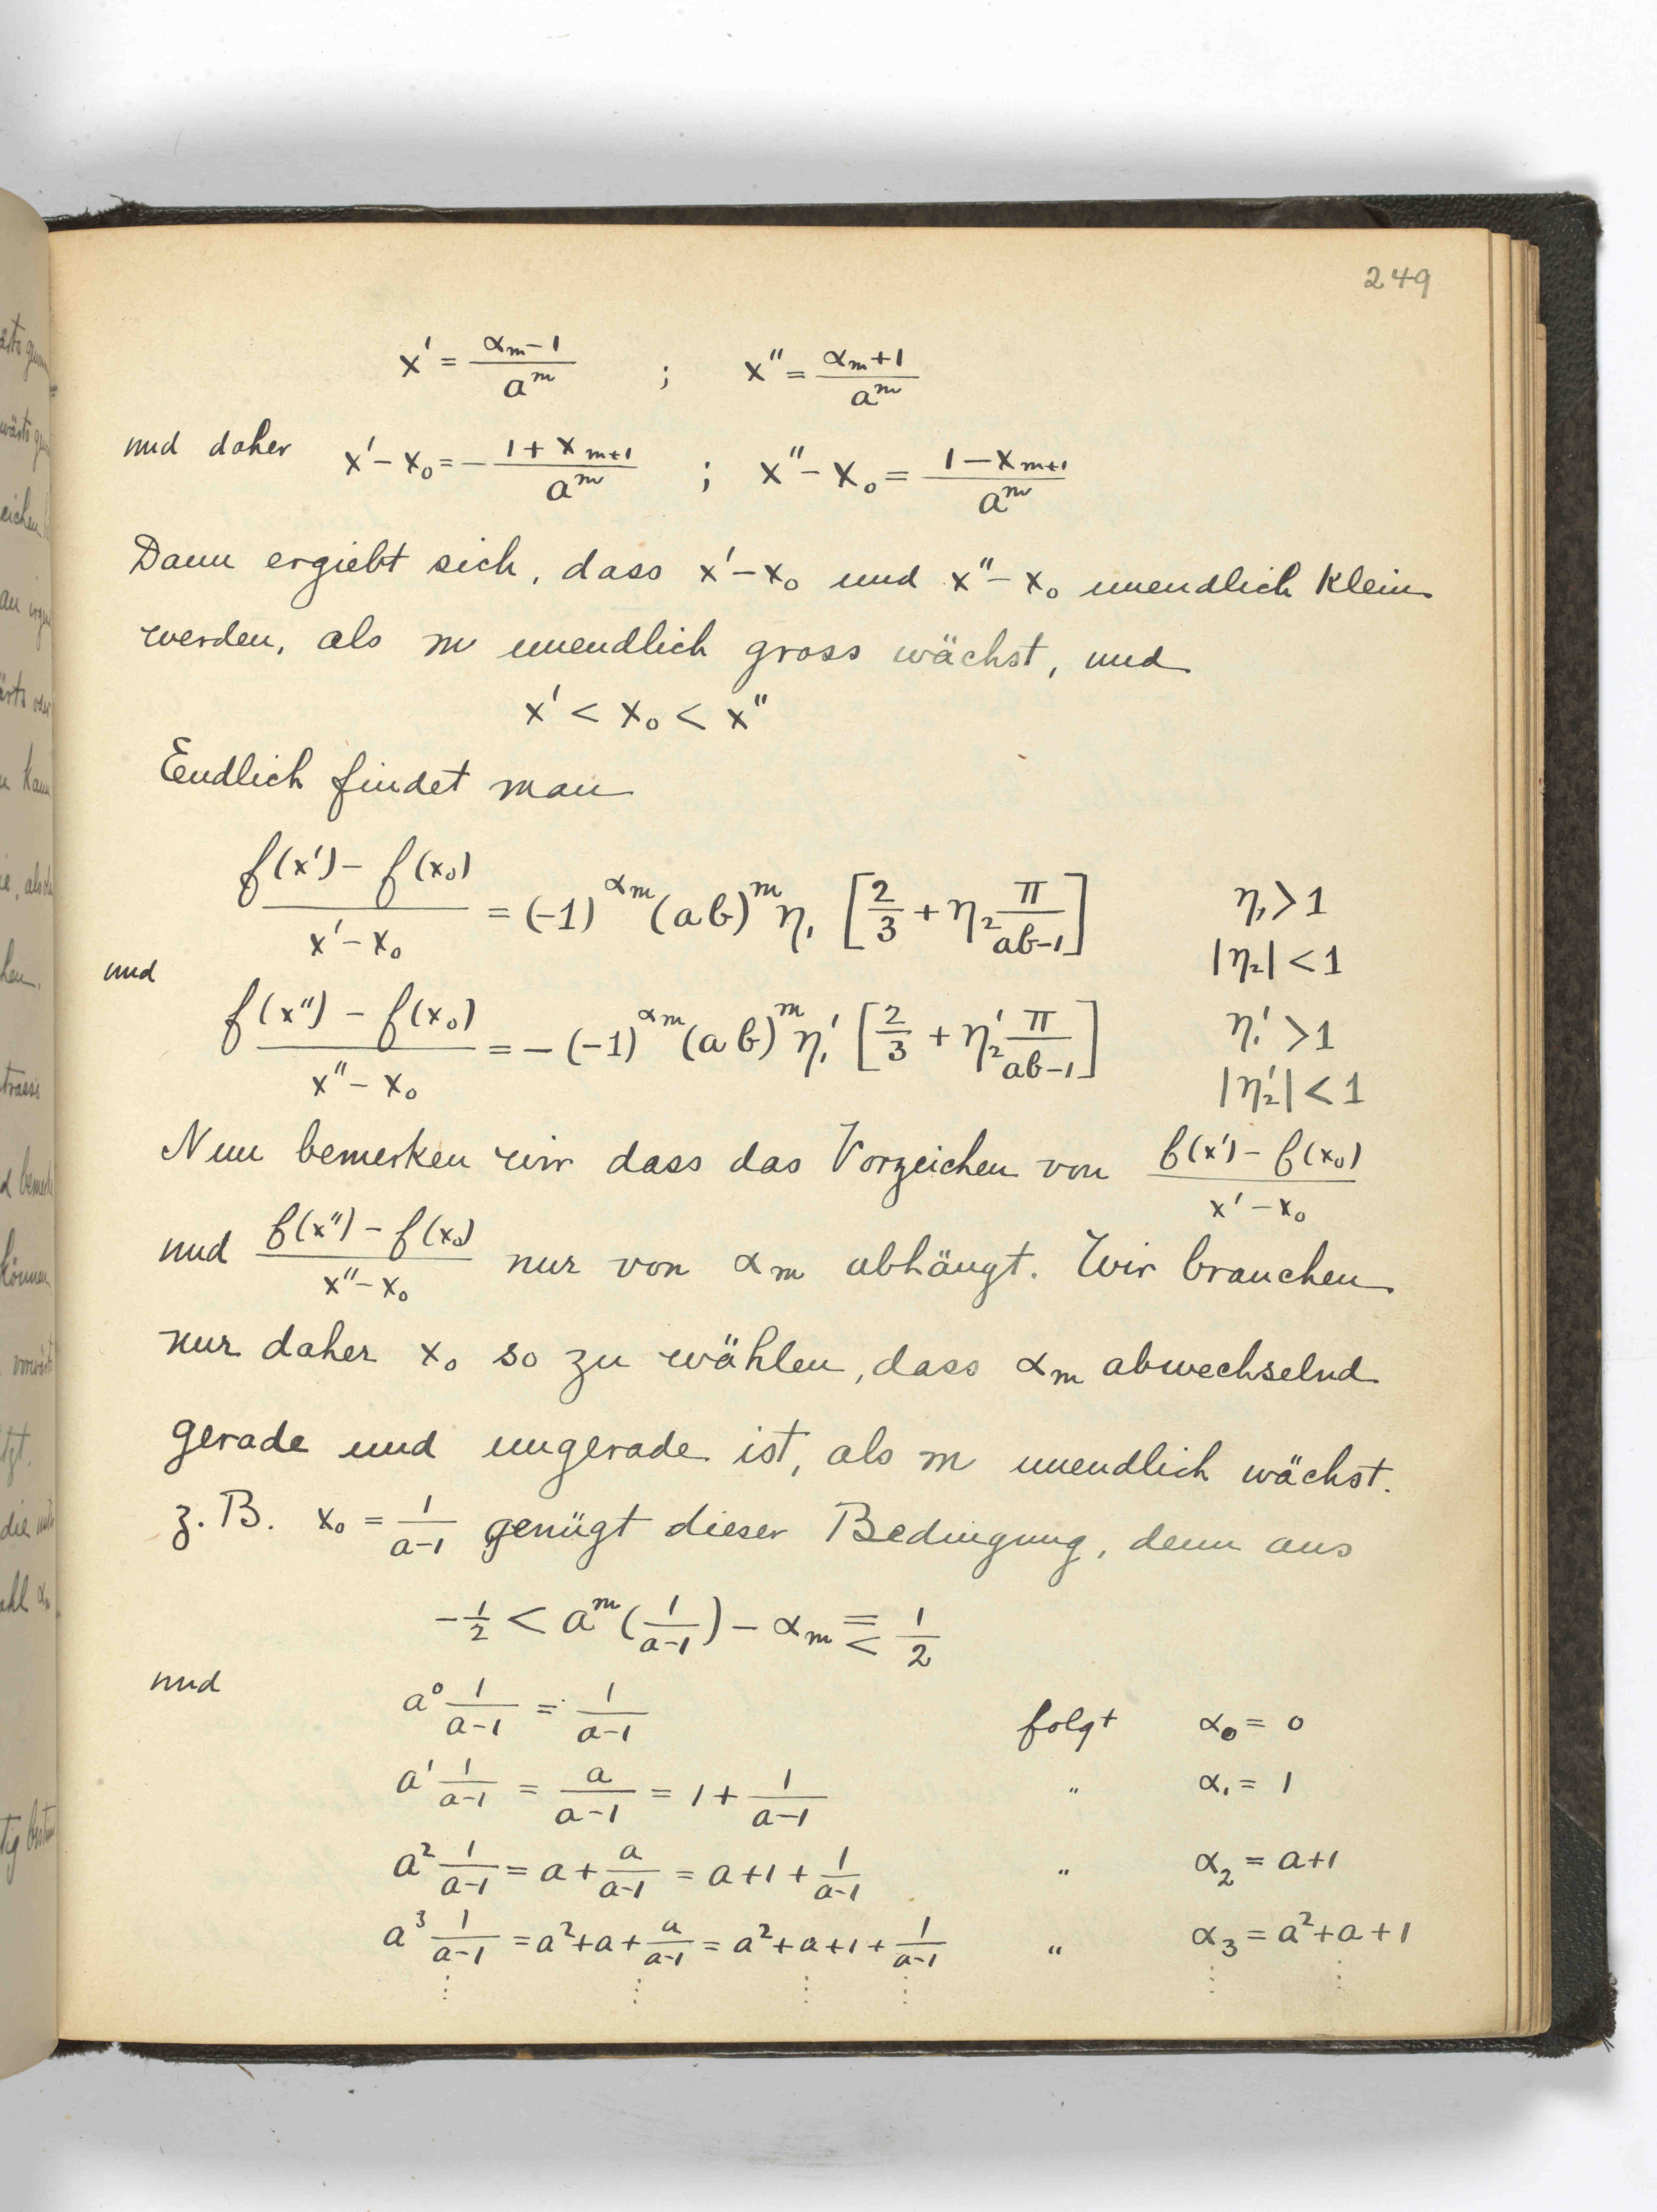 249
x' = (α_m − 1)/a^m ; x'' = (α_m + 1)/a^m
und daher x' − x₀ = − (1 + x_{m+1})/a^m ; x'' − x₀ = (1 − x_{m+1})/a^m
Dann ergiebt sich, dass x' − x₀ und x'' − x₀ unendlich klein
werden, als m unendlich gross wächst, und
x' < x₀ < x''
Endlich findet man
(f(x') − f(x₀))/(x' − x₀) = (−1)^{α_m} (ab)^m η₁ [2/3 + η₂ π/(ab−1)] η₁ > 1
|η₂| < 1
und
(f(x'') − f(x₀))/(x'' − x₀) = − (−1)^{α_m} (ab)^m η₁' [2/3 + η₂' π/(ab−1)] η₁' > 1
|η₂'| < 1
Nun bemerken wir dass das Vorzeichen von (f(x') − f(x₀))/(x' − x₀)
und (f(x'') − f(x₀))/(x'' − x₀) nur von α_m abhängt. Wir brauchen
nur daher x₀ so zu wählen, dass α_m abwechselnd
gerade und ungerade ist, als m unendlich wächst.
z. B. x₀ = 1/(a−1) genügt dieser Bedingung, denn aus
−1/2 < a^m (1/(a−1)) − α_m ≦ 1/2
und
a⁰ 1/(a−1) = 1/(a−1) folgt α₀ = 0
a¹ 1/(a−1) = a/(a−1) = 1 + 1/(a−1) " α₁ = 1
a² 1/(a−1) = a + a/(a−1) = a+1 + 1/(a−1) " α₂ = a+1
a³ 1/(a−1) = a²+a+ a/(a−1) = a²+a+1+ 1/(a−1) " α₃ = a²+a+1
⋮ ⋮ ⋮ ⋮ ⋮ ⋮